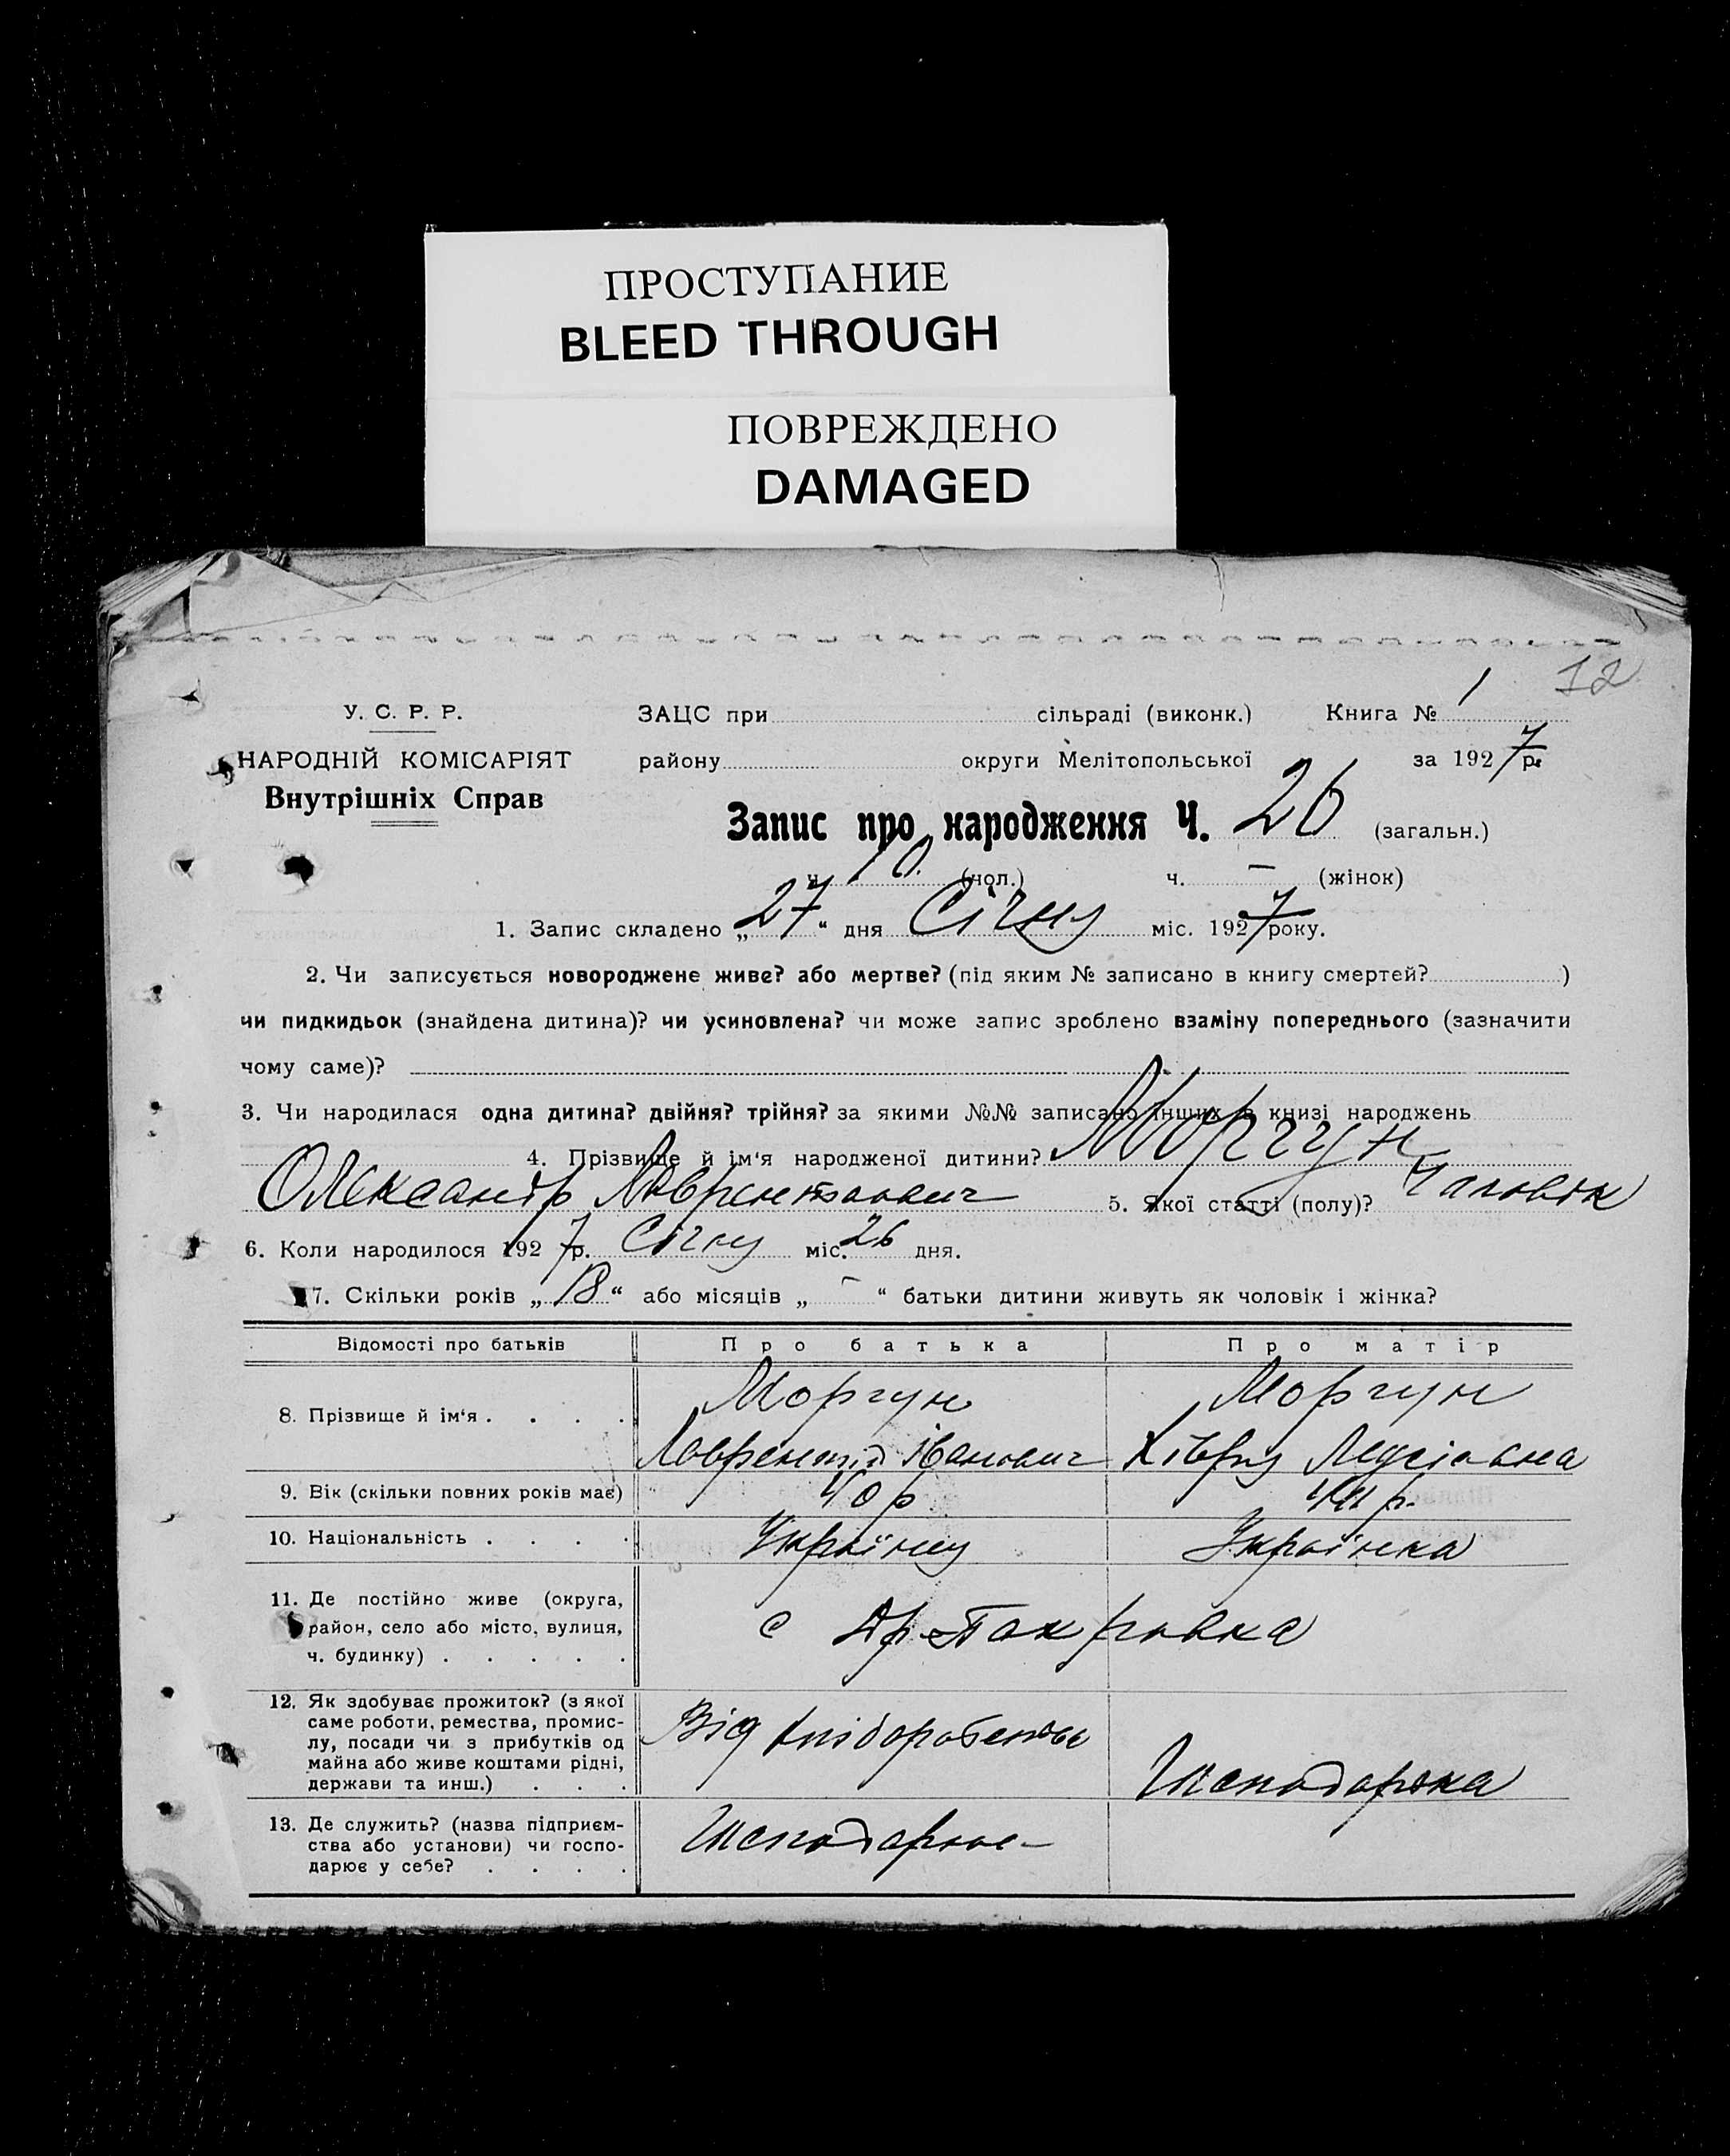 ПРОСТУПАНИЕ
BLEED THROUGH
ПОВРЕЖДЕНО
DAMAGED
12
У. С. Р. Р. ЗАЦС при сільраді (виконк.) Книга № 1
НАРОДНІЙ КОМІСАРІЯТ району округи Мелітопольської за 1927 р.
Внутрішніх Справ
Запис про народження Ч. 26 (загальн.)
ч. 10 (чол.) ч. – (жінок)
1. Запис складено „27“ дня Січну міс. 1927 року.
2. Чи записується новороджене живе? або мертве? (під яким № записано в книгу смертей? )
чи пидкидьок (знайдена дитина)? чи усиновлена? чи може запис зроблено взаміну попереднього (зазначити
чому саме)?
3. Чи народилася одна дитина? двійня? трійня? за якими №№ записано інших в книзі народжень
4. Прізвище й ім'я народженої дитини? Моргун
Олександр Лаврентьович 5. Якої статті (полу)? Чаловік
6. Коли народилося 1927 р. Січну міс. 26 дня.
7. Скільки років „18“ або місяців „–“ батьки дитини живуть як чоловік і жінка?
Відомості про батьків Про батька Про матір
8. Прізвище й ім'я . . . . Моргун Моргун
Лаврентій Іванович Хіврy
9. Вік (скільки повних років має) 40 р. р.
10. Національність . . . . Українец Українка
11. Де постійно живе (округа,
район, село або місто, вулиця,
ч. будинку) . . . . . с
12. Як здобуває прожиток? (з якої
саме роботи, ремества, промис-
лу, посади чи з прибутків од
майна або живе коштами рідні,
держави та инш.) . . . Від хліборобства
13. Де служить? (назва підприєм-
ства або установи) чи госпо-
дарює у себе? . . . .